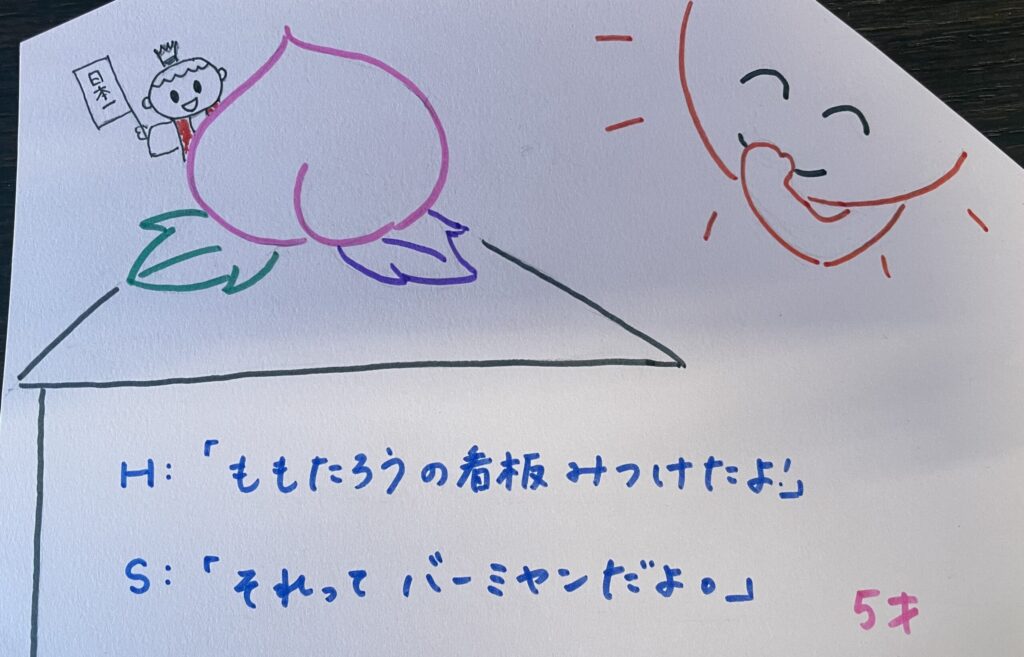 日本一
H:「ももたろうの看板みつけたよ!」
S:「それってバーミヤンだよ。」
5才